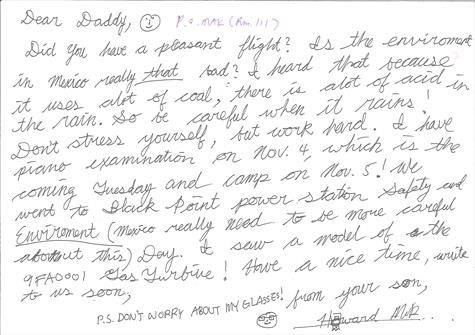 Dear Daddy,
Did you have a pleasant flight? Is the enviroment
in Mexico really that bad? I heard that because
it uses alot of coal, there is alot of acid in
the rain. So be careful when it rains!
Don't stress yourself, but work hard. I have
piano examination on Nov. 4, which is the
coming Tuesday and camp on Nov. 5! We
went to Black Point power station Safety and
Enviroment (Mexico really need to be more careful
about this) Day. I saw a model of a the
9FA0001 Gas Turbine! Have a nice time, write
to us soon,
from your son,
P.S. DON'T WORRY ABOUT MY GLASSES!
Howard